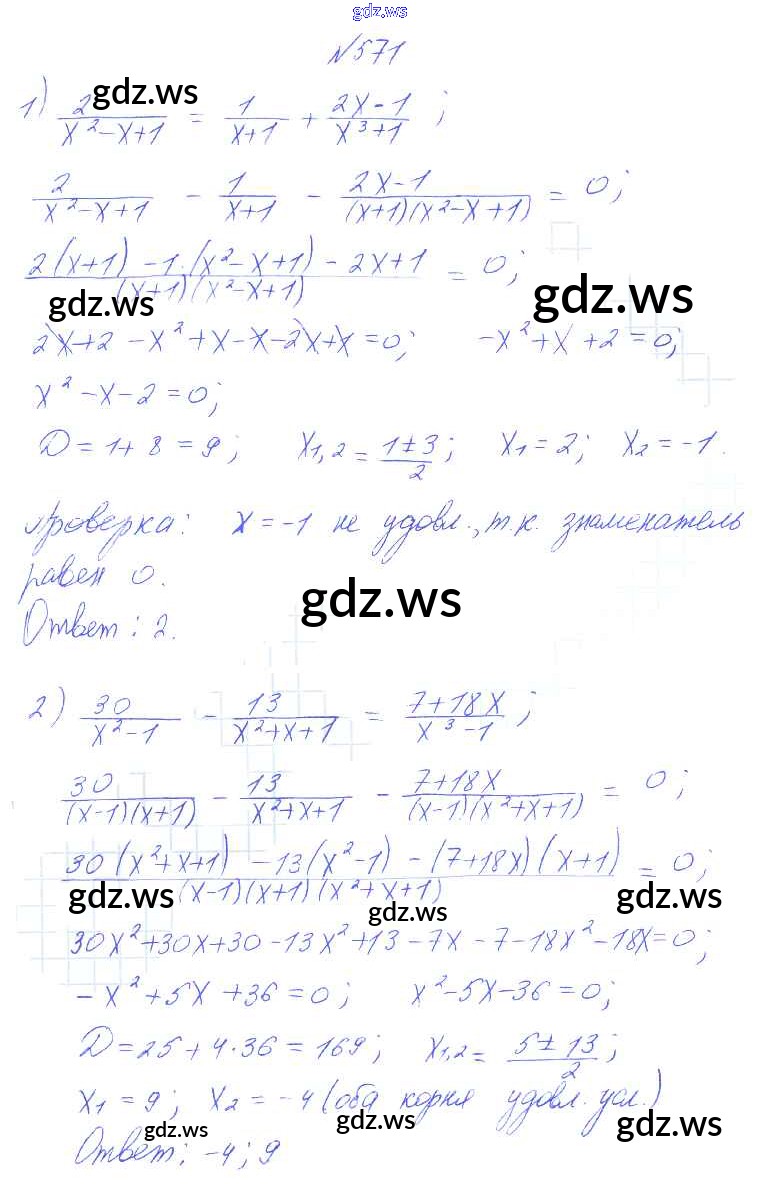 gdz.ws
№571
1) 2/(x²-x+1) = 1/(x+1) + (2x-1)/(x³+1) ;
gdz.ws
2/(x²-x+1) - 1/(x+1) - (2x-1)/((x+1)(x²-x+1)) = 0;
(2(x+1) -1·(x²-x+1) - 2x+1)/((x+1)(x²-x+1)) = 0;
gdz.ws gdz.ws
2x+2 -x²+x-x-2x+x=0; -x²+x+2=0;
x²-x-2=0;
D=1+8=9; x₁,₂ = (1±3)/2; x₁=2; x₂=-1.
Проверка: x=-1 не удовл., т.к. знаменатель
равен 0.
gdz.ws
Ответ: 2.
2) 30/(x²-1) - 13/(x²+x+1) = (7+18x)/(x³-1) ;
30/((x-1)(x+1)) - 13/(x²+x+1) - (7+18x)/((x-1)(x²+x+1)) = 0;
(30(x²+x+1) -13(x²-1) -(7+18x)(x+1))/((x-1)(x+1)(x²+x+1)) = 0;
gdz.ws gdz.ws gdz.ws
30x²+30x+30-13x²+13-7x-7-18x²-18x=0;
-x²+5x+36=0; x²-5x-36=0;
D=25+4·36=169; x₁,₂ = (5±13)/2;
x₁=9; x₂=-4 (оба корня удовл. усл.)
gdz.ws gdz.ws gdz.ws
Ответ: -4; 9